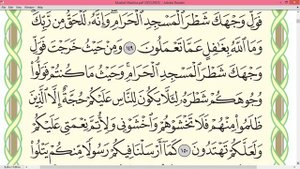 فَوَلِّ وَجْهَكَ شَطْرَ ٱلْمَسْجِدِ ٱلْحَرَامِ وَإِنَّهُۥ لَلْحَقُّ مِن رَّبِّكَ
وَمَا ٱللَّهُ بِغَٰفِلٍ عَمَّا تَعْمَلُونَ ١٤٩ وَمِنْ حَيْثُ خَرَجْتَ فَوَلِّ
وَجْهَكَ شَطْرَ ٱلْمَسْجِدِ ٱلْحَرَامِ وَحَيْثُ مَا كُنتُمْ فَوَلُّوا۟
وُجُوهَكُمْ شَطْرَهُۥ لِئَلَّا يَكُونَ لِلنَّاسِ عَلَيْكُمْ حُجَّةٌ إِلَّا ٱلَّذِينَ
ظَلَمُوا۟ مِنْهُمْ فَلَا تَخْشَوْهُمْ وَٱخْشَوْنِى وَلِأُتِمَّ نِعْمَتِى عَلَيْكُمْ
وَلَعَلَّكُمْ تَهْتَدُونَ ١٥٠ كَمَآ أَرْسَلْنَا فِيكُمْ رَسُولًا مِّنكُمْ يَتْلُوا۟